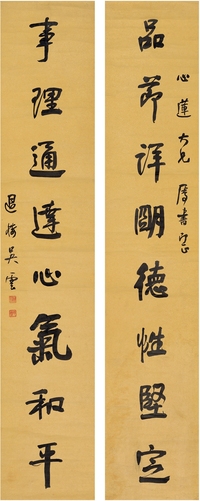 品節詳明德性堅定
心蓮大兄屬書即正
事理通達心氣和平
退樓吳雲